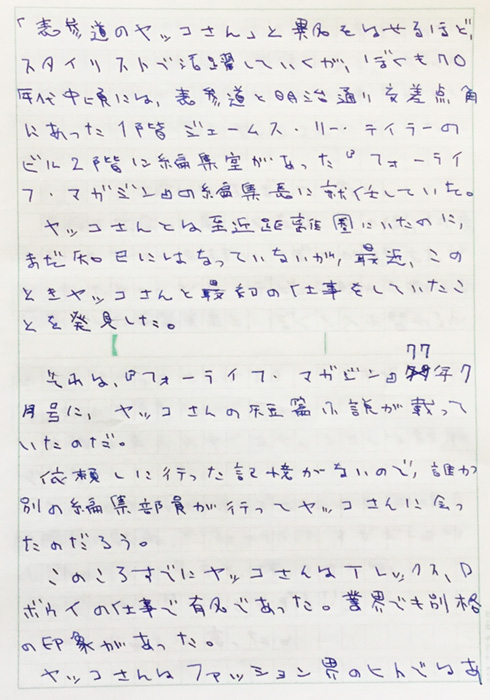 「表参道のヤッコさん」と異名をはせるほど、
スタイリストで活躍していくが、ぼくも70
年代中頃には、表参道と明治通り交差点角
にあった1階ジェームス・リー・テイラーの
ビル2階に編集室があった『フォーライ
フ・マガジン』の編集長に就任していた。
ヤッコさんとは至近距離圏にいたのに、
まだ知己にはなっていないが、最近、この
ときヤッコさんと最初の仕事をしていたこ
とを発見した。
77
それは、『フォーライフ・マガジン』年7
月号に、ヤッコさんの短篇小説が載って
いたのだ。
依頼しに行った記憶がないので、誰か
別の編集部員が行ってヤッコさんに会っ
たのだろう。
このころすでにヤッコさんはTレックス、D
ボウイの仕事で有名であった。業界でも別格
の印象があった。
ヤッコさんはファッション界のヒトではあ